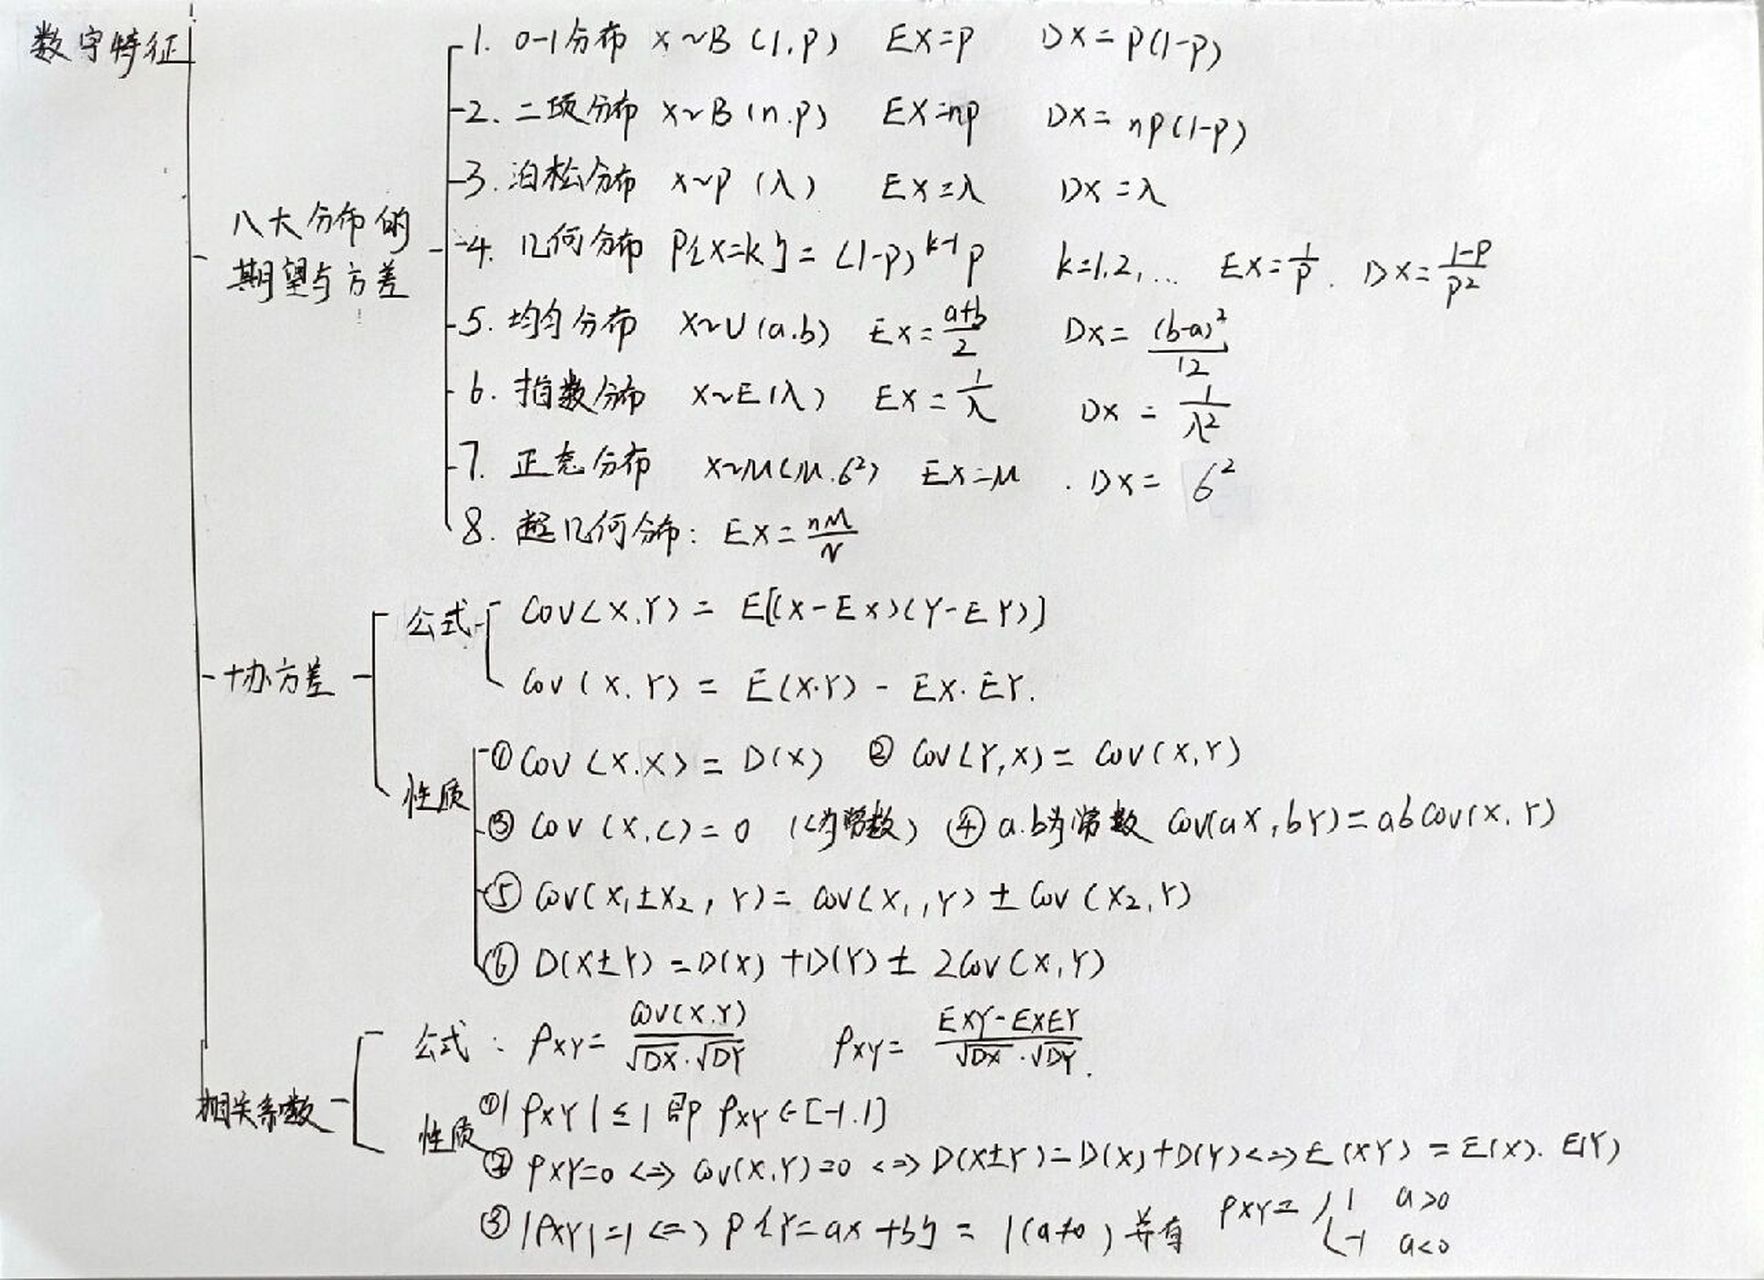 数字特征
八大分布的
期望与方差
1. 0-1分布 X~B(1,p) EX=p DX=p(1-p)
2. 二项分布 X~B(n.p) EX=np DX=np(1-p)
3. 泊松分布 X~P(λ) EX=λ DX=λ
4. 几何分布 P{X=k}=(1-p)^{k-1}p k=1,2,... EX=\frac{1}{p}. DX=\frac{1-p}{p^2}
5. 均匀分布 X~U(a.b) EX=\frac{a+b}{2} DX=\frac{(b-a)^2}{12}
6. 指数分布 X~E(λ) EX=\frac{1}{λ} DX=\frac{1}{λ^2}
7. 正态分布 X~N(μ.σ²) EX=μ. DX=σ²
8. 超几何分布: EX=\frac{nM}{N}
协方差
公式
Cov(X.Y)=E[(X-EX)(Y-EY)]
Cov(X.Y)=E(X·Y)-EX·EY.
性质
①Cov(X.X)=D(X) ②Cov(Y,X)=Cov(X,Y)
③Cov(X,C)=0 (C为常数) ④a.b为常数 Cov(aX,bY)=abCov(X,Y)
⑤Cov(X₁±X₂,Y)=Cov(X₁,Y)±Cov(X₂,Y)
⑥D(X±Y)=D(X)+D(Y)±2Cov(X,Y)
相关系数
公式: ρXY=\frac{Cov(X.Y)}{\sqrt{DX}·\sqrt{DY}} ρXY=\frac{EXY-EXEY}{\sqrt{DX}·\sqrt{DY}}.
性质
①|ρXY|≤1 即 ρXY∈[-1.1]
②ρXY=0<=>Cov(X,Y)=0<=>D(X±Y)=D(X)+D(Y)<=>E(XY)=E(X).E(Y)
③|ρXY|=1<=>P{Y=aX+b}=1(a≠0)并有 ρXY={1 a>0
-1 a<0